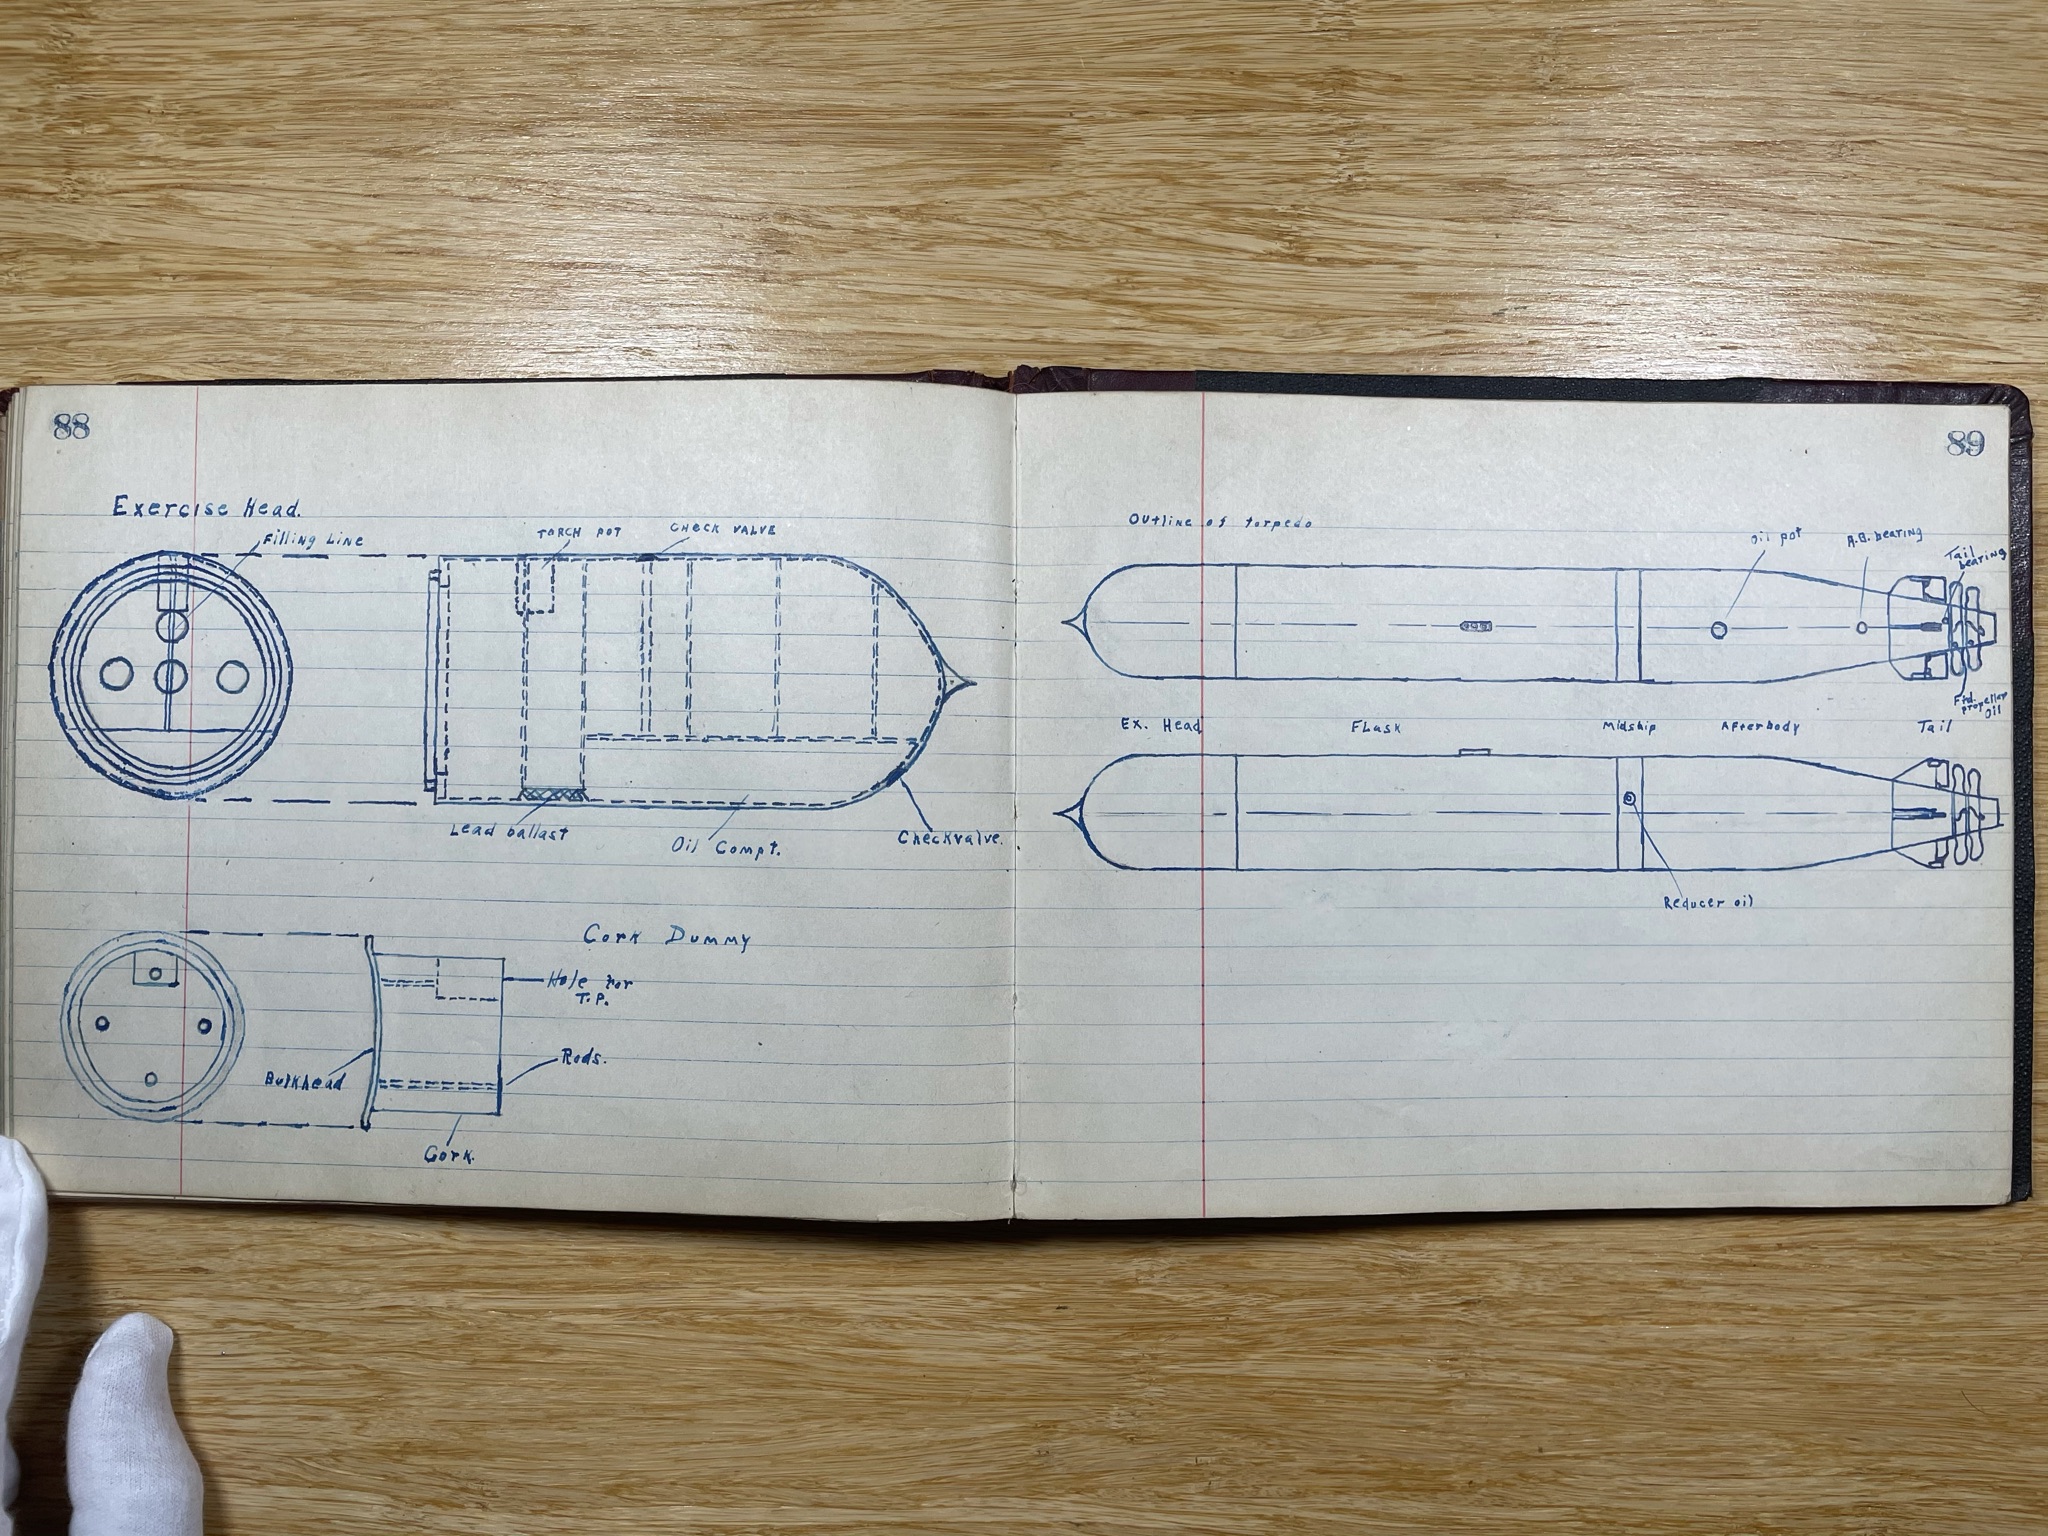 88
Exercise Head.
Filling Line
TORCH POT
CHECK VALVE
Lead ballast
Oil Compt.
Checkvalve.
Cork Dummy
Hole for
T.P.
Rods.
Bulkhead
Cork.
89
Outline of torpedo
Oil pot
A.B. bearing
Tail
bearing
Fwd.
propeller
oil
Ex. Head
Flask
Midship
Afterbody
Tail
Reducer oil